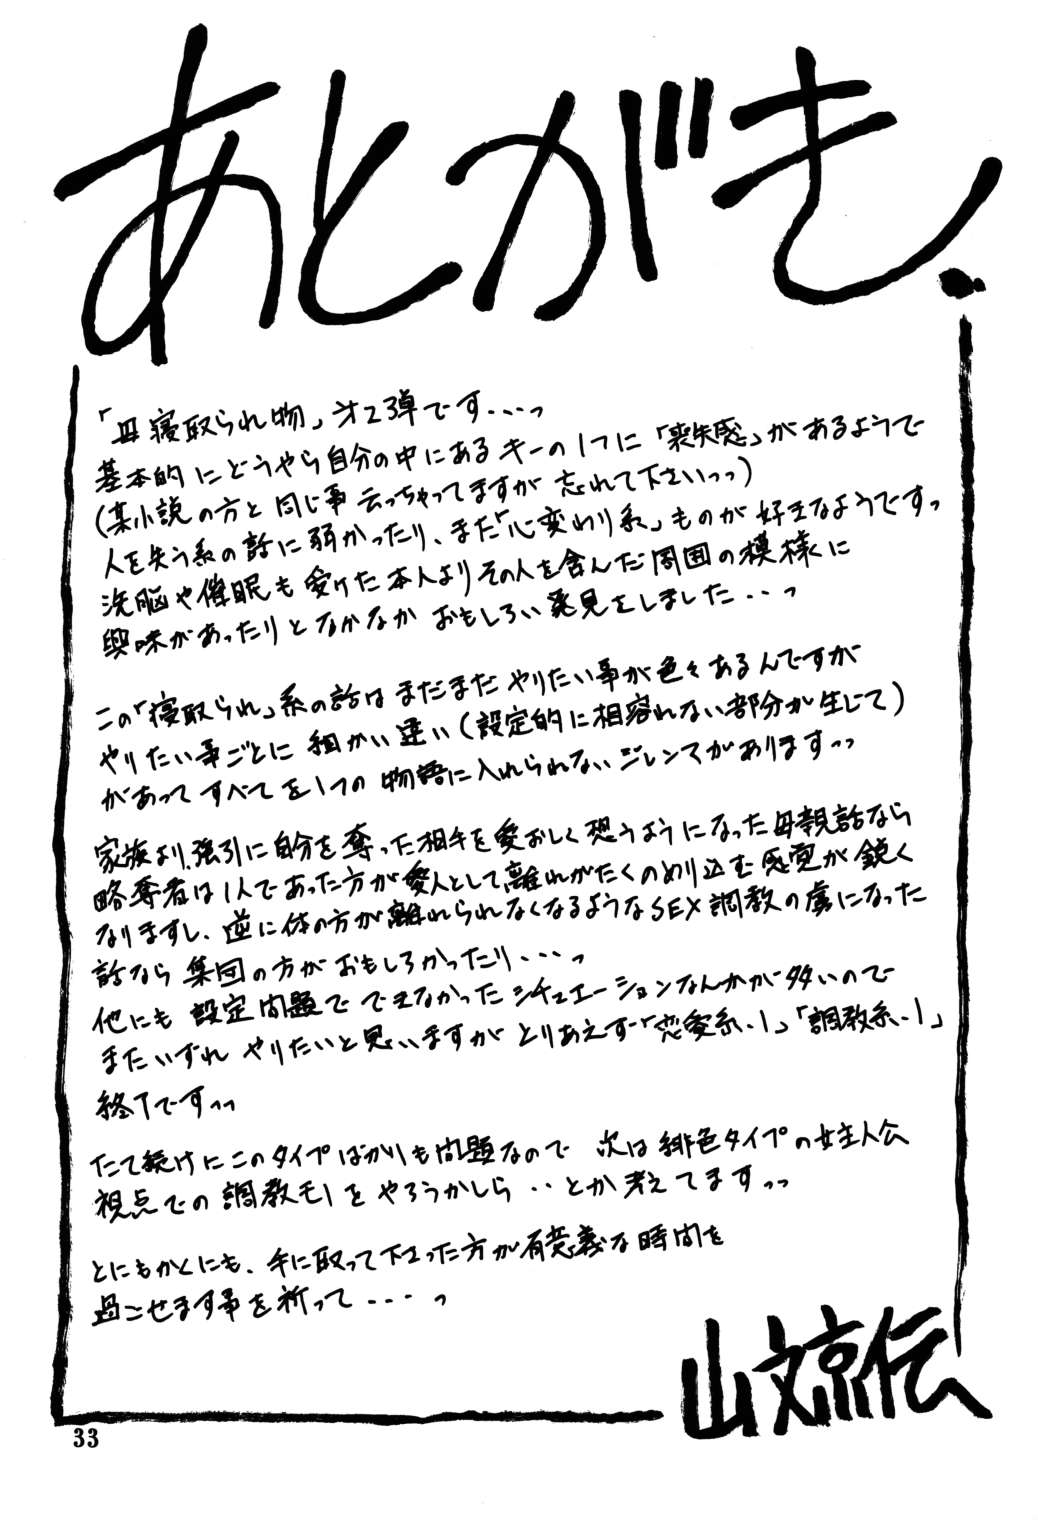 あとがき.
「母寝取られ物」才2弾です...っ
基本的にどうやら自分の中にあるキーの1つに「喪失感」があるようで
(某小説の方と同じ事 云っちゃってますが 忘れて下さいっっ)
人を失う系の話に弱かったり、また「心変わり系」ものが好きなようですっ
洗脳や催眠も受けた本人よりその人を含んだ周囲の模様に
興味があったりとなかなか おもしろい発見をしました...っ
この「寝取られ」系の話はまだまだ やりたい事が色々あるんですが
やりたい事ごとに 細かい違い(設定的に相容れない部分が生じて)
があって すべてを1つの 物語に入れられないジレンマがありますっっ
家族より、強引に自分を奪った相手を愛おしく想うようになった母親話なら
略奪者は1人であった方が愛人として離れがたくのめり込む感覚が鋭く
なりますし、逆に体の方が離れられなくなるようなSEX調教の虜になった
話なら 集団の方がおもしろかったり...っ
他にも 設定問題でできなかったシチュエーションなんかが多いので
またいずれ やりたいと思いますが とりあえず「恋愛系.1」「調教系.1」
終了ですっっ
たて続けにこのタイプばかりも問題なので 次は緋色タイプの女主人公
視点での調教モノをやろうかしら..とか考えてますっっ
とにもかくにも、手に取って下さった方が有意義な時間を
過ごせます事を祈って...っ
山文京伝
33